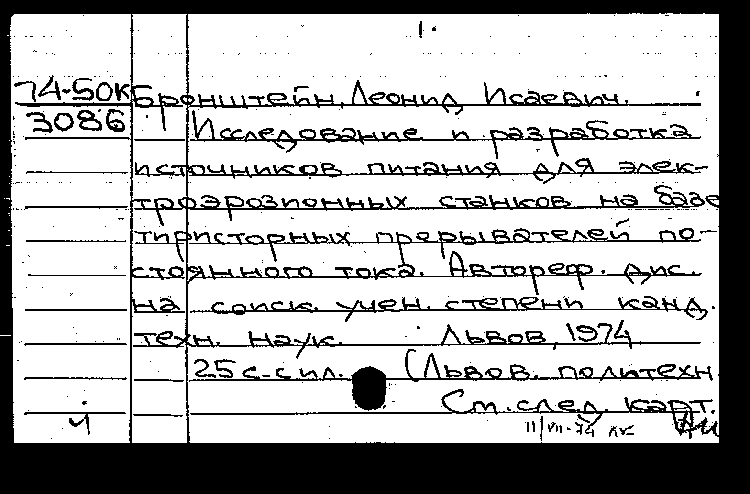 1.
74-50к Бронштейн, Леонид Исаевич.
3086 Исследование и разработка
источников питания для элек-
троэрозионных станков на базе
тиристорных прерывателей по-
стоянного тока. Автореф. дис.
на соиск. учен. степени канд.
техн. наук. Львов, 1974
25 с. с ил. (Львов. политехн.
См. след. карт.